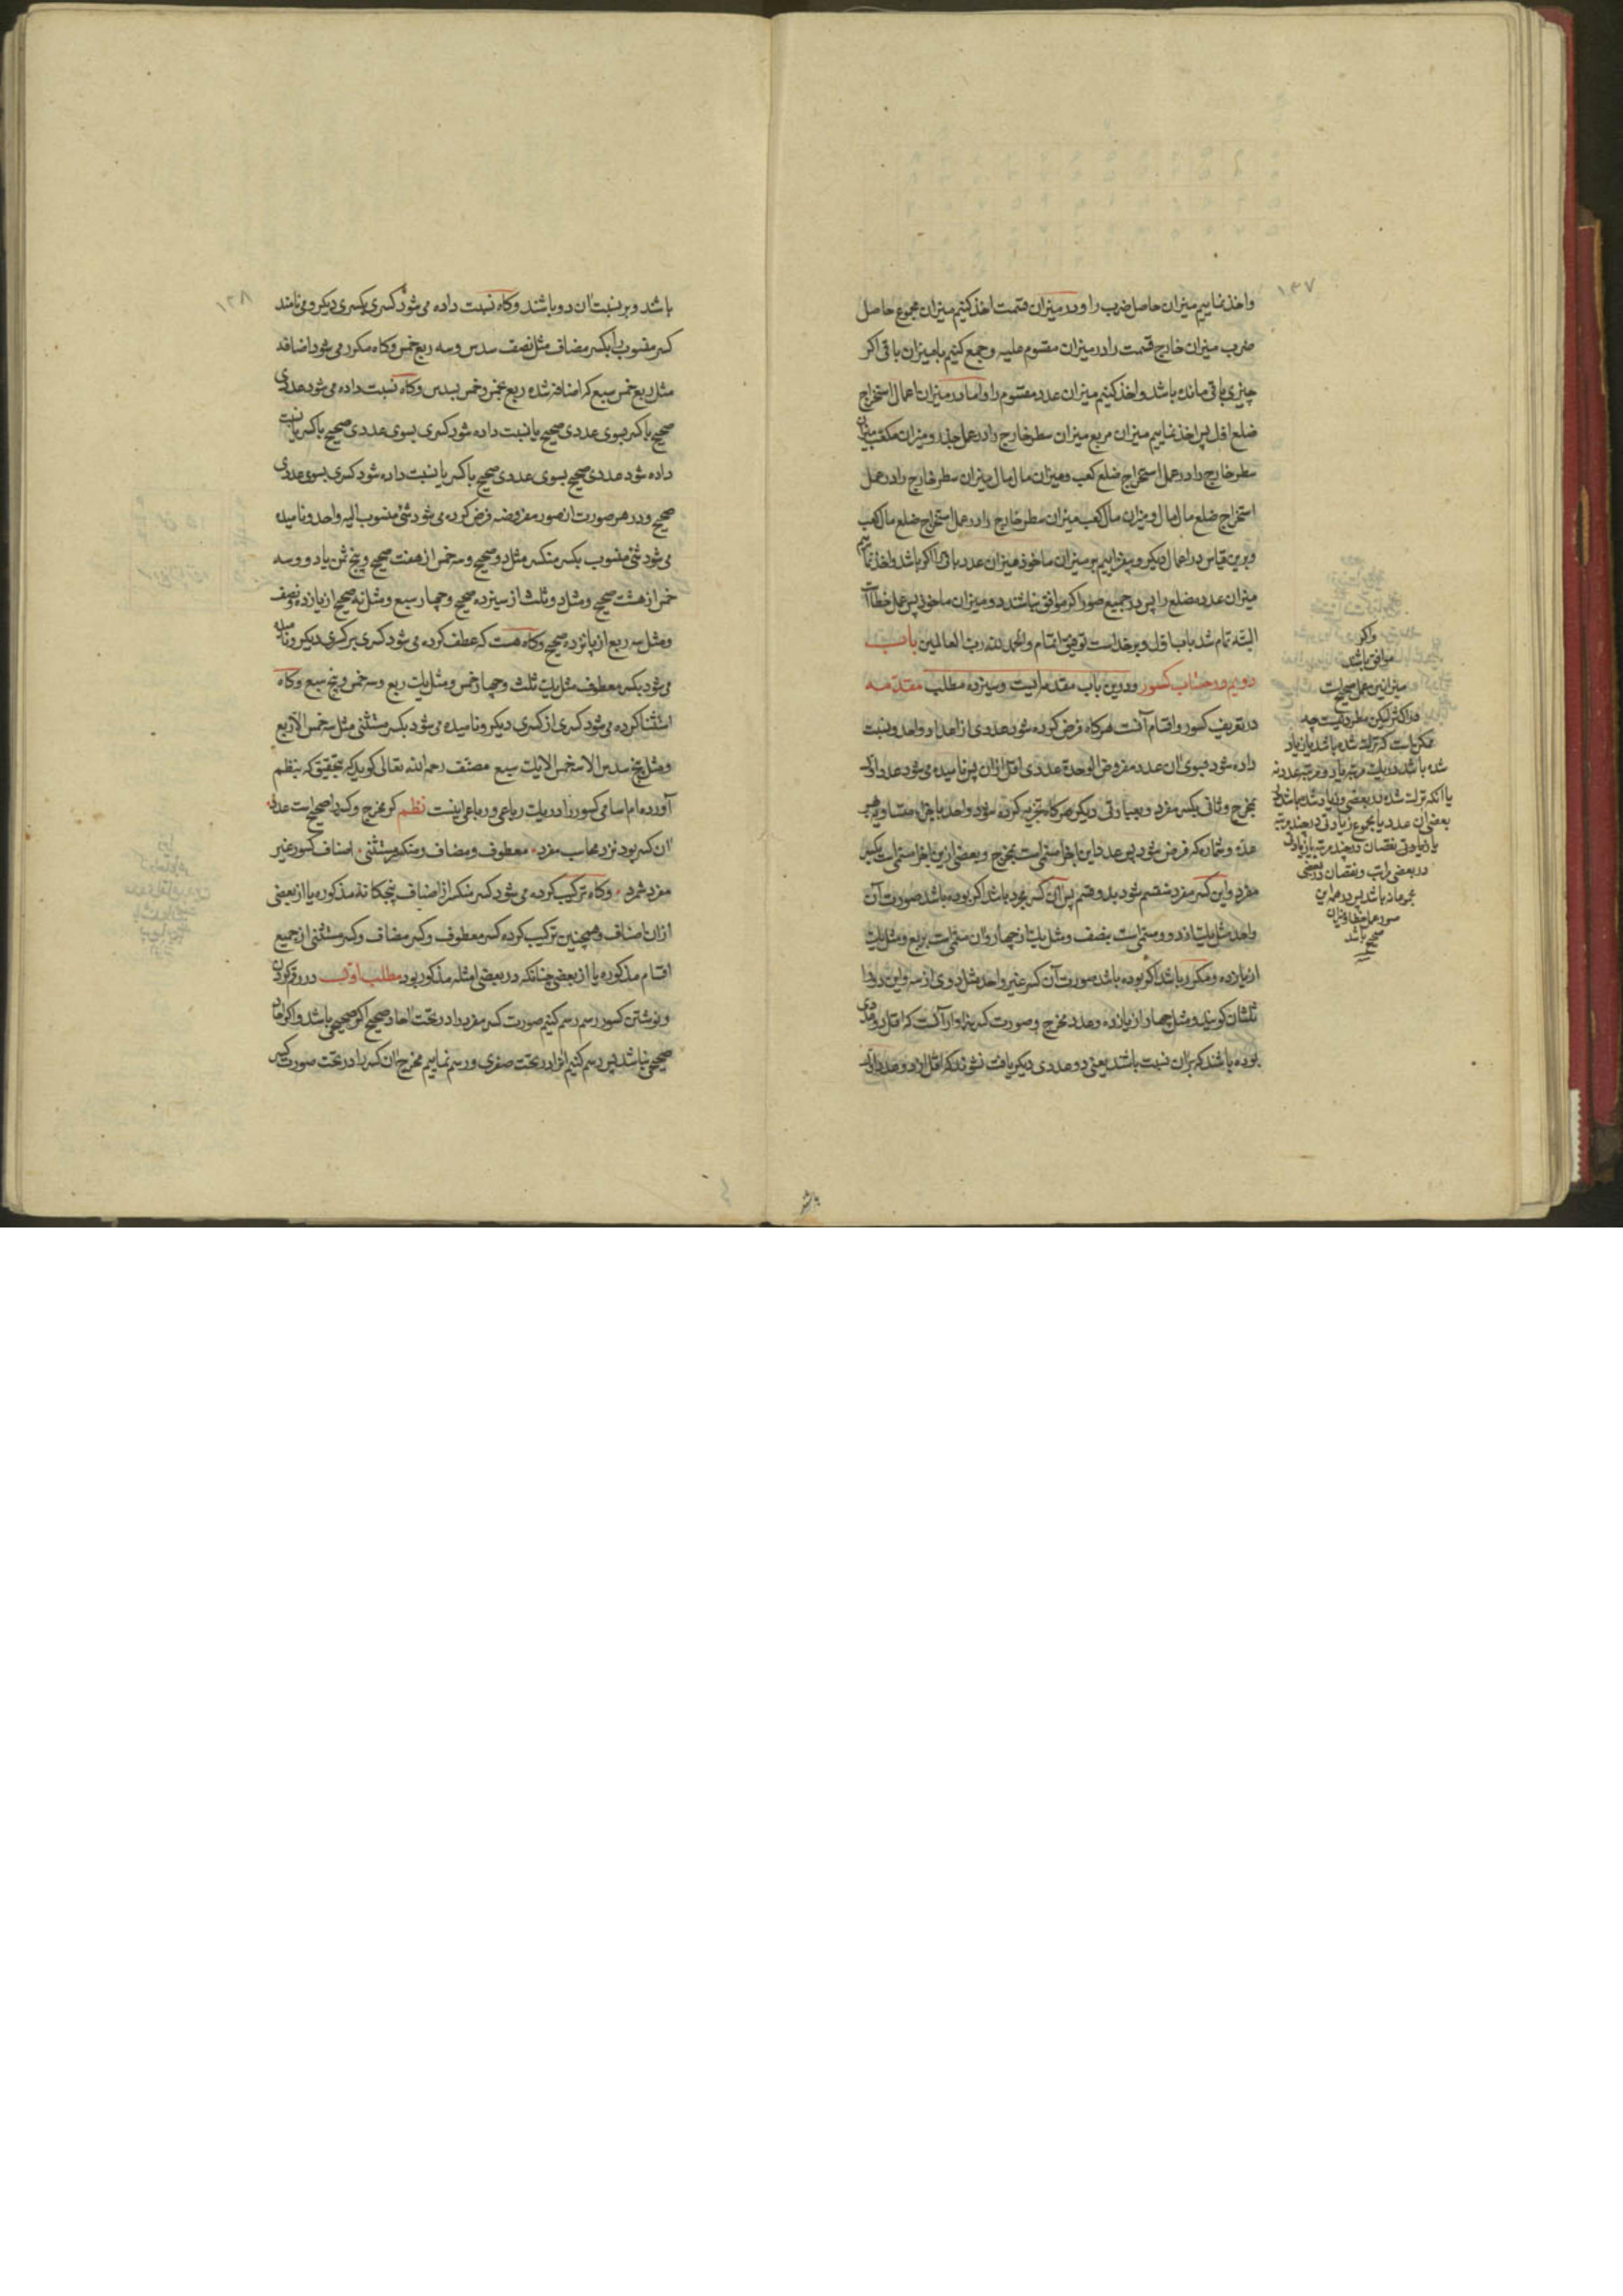 ۱۳۷
واخذ نماییم میزان حاصل ضرب را و در میزان قسمت اخذ کنیم میزان مجموع حاصل
ضرب میزان خارج قسمت را در میزان مقسوم علیه و جمع کنیم با میزان باقی اکر
چیزی باقی مانده باشد و اخذ کنیم میزان عدد مقسوم را و اما در میزان اعمال استخراج
ضلع اول پس اخذ نماییم میزان مربع میزان سطر خارج را در عمل جذر و میزان مکعب میزان
سطر خارج را در عمل استخراج ضلع کعب و میزان مال مال میزان سطر خارج را در عمل
استخراج ضلع مال مال و میزان مال کعب میزان سطر خارج را در عمل استخراج ضلع مال کعب
و برین قیاس در اعمال دیکر و بیفزاییم بر میزان ماخوذ میزان عدد باقی را اکر باشد و اخذ نماییم
میزان عدد مضلع را پس در جمیع صور اکر موافق نباشند دو میزان ماخوذ پس عمل خطا است
البته تمام شد باب اول و بر خداست توفیق اتمام و الحمد لله رب العالمین باب
دویم در حساب کسور و درین باب مقدمه ایست و سیزده مطلب مقدمه
در تعریف کسور و اقسام آنست هرکاه فرض کرده شود عددی از اعداد واحد و نسبت
داده شود بسوی ان عدد مفروض الوحدة عددی اقل ازان پس نامیده می شود عدد اول
بمخرج و ثانی بکسر مفرد و بعبارتی دیکر هرکاه تجزیه کرده شود واحد باجزاء متساویه هر
عده و شماره که فرض شود پس عدد این اجزا مسمی است بمخرج و بعضی ازین اجزا مسمی است بکسر
مفرد و این کسر مفرد منقسم شود بدو قسم پس ان کسر مجرد باشد اکر بوده باشد صورت آن
واحد مثل یک از دو و مسمی است بنصف و مثل یک از چهار و ان مسمی است بربع و مثل یک
از یازده و مکرر باشد اکر بوده باشد صورت آن کسر غیر واحد مثل دوی از سه و این دو را
ثلثان کویند و مثل چهار از یازده و عدد مخرج و صورت کسر سزاوار آنست که اقل دو عددی
بوده باشند که بران نسبت باشند یعنی دو عددی دیکر یافت نشوند که اقل از دو عدد اول
واکر
موافق باشد
میزانین عمل صحیح است
در اکثر لیکن مطرد نیست چه
ممکن است که ترک شده باشد یا زیاد
شده باشد در یک مرتبه یا دو مرتبه عدد نه
یا انکه ترک شده در بعضی و زیاد شده باشد در
بعضی ان عدد یا مجموع زیادتی در چند مرتبه
یا زیادتی نقصان در چند مرتبه یا زیادتی
در بعضی مراتب و نقصان در بعضی
مجموعا نه باشد پس در همه این
صور عمل خطا و میزان
صحیح باشد
باشد
۱۳۸
باشد و بر نسبت ان دو باشند و کاه نسبت داده می شود کسری بکسری دیکر و می نامند
کسر منسوب را بکسر مضاف مثل نصف سدس و سه ربع خمس و کاه مکرر می شود اضافه
مثل ربع خمس سبع که اضافه شده ربع بخمس و خمس بسدس و کاه نسبت داده می شود عددی
صحیح با کسر بسوی عددی صحیح یا نسبت داده شود کسری بسوی عددی صحیح با کسر یا نسبت
داده شود عددی صحیح بسوی عددی صحیح با کسر یا نسبت داده شود کسری بسوی عددی
صحیح و در هر صورت از صور مفروضه فرض کرده می شود شئ منسوب الیه واحد و نامیده
می شود شئ منسوب بکسر منکسر مثل دو صحیح و سه خمس از هفت صحیح و پنج ثمن یا دو و سه
خمس از هشت صحیح و مثل دو ثلث از سیزده صحیح و چهار سبع و مثل نه صحیح از یازده و نصف
و مثل سه ربع از پانزده صحیح و کاه هست که عطف کرده می شود کسری بر کسری دیکر و نامیده
می شود بکسر معطوف مثل یک ثلث و چهار خمس و مثل یک ربع و سه خمس و پنج سبع و کاه
استثنا کرده می شود کسری از کسری دیکر و نامیده می شود بکسر مستثنی مثل سه خمس الا ربع
و مثل پنج سدس الا سه خمس الا یک سبع مصنف رحمه الله تعالی کوید که بتحقیق که بنظم
آورده ام اسامی کسور را در یک رباعی و رباعی اینست نظم کر مخرج و کسر را صحیح است عدد
ان کسر بود نزد محاسب مفرد معطوف و مضاف و منکسر مستثنی اصناف کسور غیر
مفرد شمرد و کاه ترکیب کرده می شود کسر منکسر از اصناف پنجکانه مذکوره یا از بعضی
ازان اصناف و همچنین ترکیب کرده کسر معطوف و کسر مضاف و کسر مستثنی از جمیع
اقسام مذکوره یا از بعضی چنانکه در بعضی امثله مذکور بود مطلب اول در رقم کردن
و نوشتن کسور رسم کنیم صورت کسر مفرد را در تحت احاد صحیح اکر صحیحی باشد و اکر احاد
صحیحی نباشد پس رسم کنیم انرا در تحت صفری و رسم نماییم مخرج ان کسر را در تحت صورت کسر